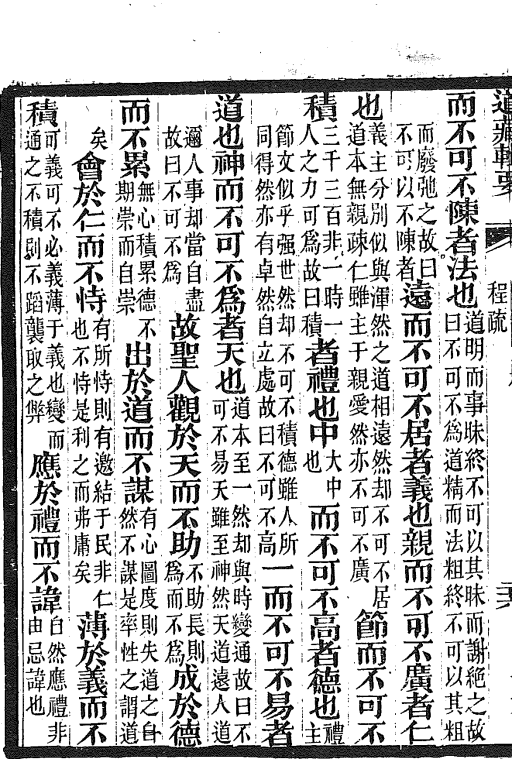 道藏輯要
程疏
而不可不陳者法也道明而事昧終不可以其昧而謝絕之故
曰不可不為道精而法粗終不可以其粗
而廢弛之故曰
不可以不陳者遠而不可不居者義也親而不可不廣者仁
也義主分別似與渾然之道相遠然却不可不居
道本無親疎仁雖主于親愛然亦不可不廣節而不可不
積三千三百非一時一
人之力可為故曰積者禮也中大中
也而不可不高者德也禮
主
節文似乎强世然却不可不積德雖人所
同得然亦有卓然自立處故曰不可不高一而不可不易者
道也神而不可不為者天也道本至一然却與時變通故曰不
可不易天雖至神然天道遠人道
邇人事却當自盡
故曰不可不為故聖人觀於天而不助不助長則
為而不為成於德
而不累無心積累德
期崇而自崇不出於道而不謀有心圖度則失道之自
然不謀是率性之謂道
矣會於仁而不恃有所恃則有邀結于民非仁
也不恃是利之而弗庸矣薄於義而不
積可義可不必義薄于義也變而
通之不積則不蹈襲取之弊應於禮而不諱自然應禮非
由忌諱也